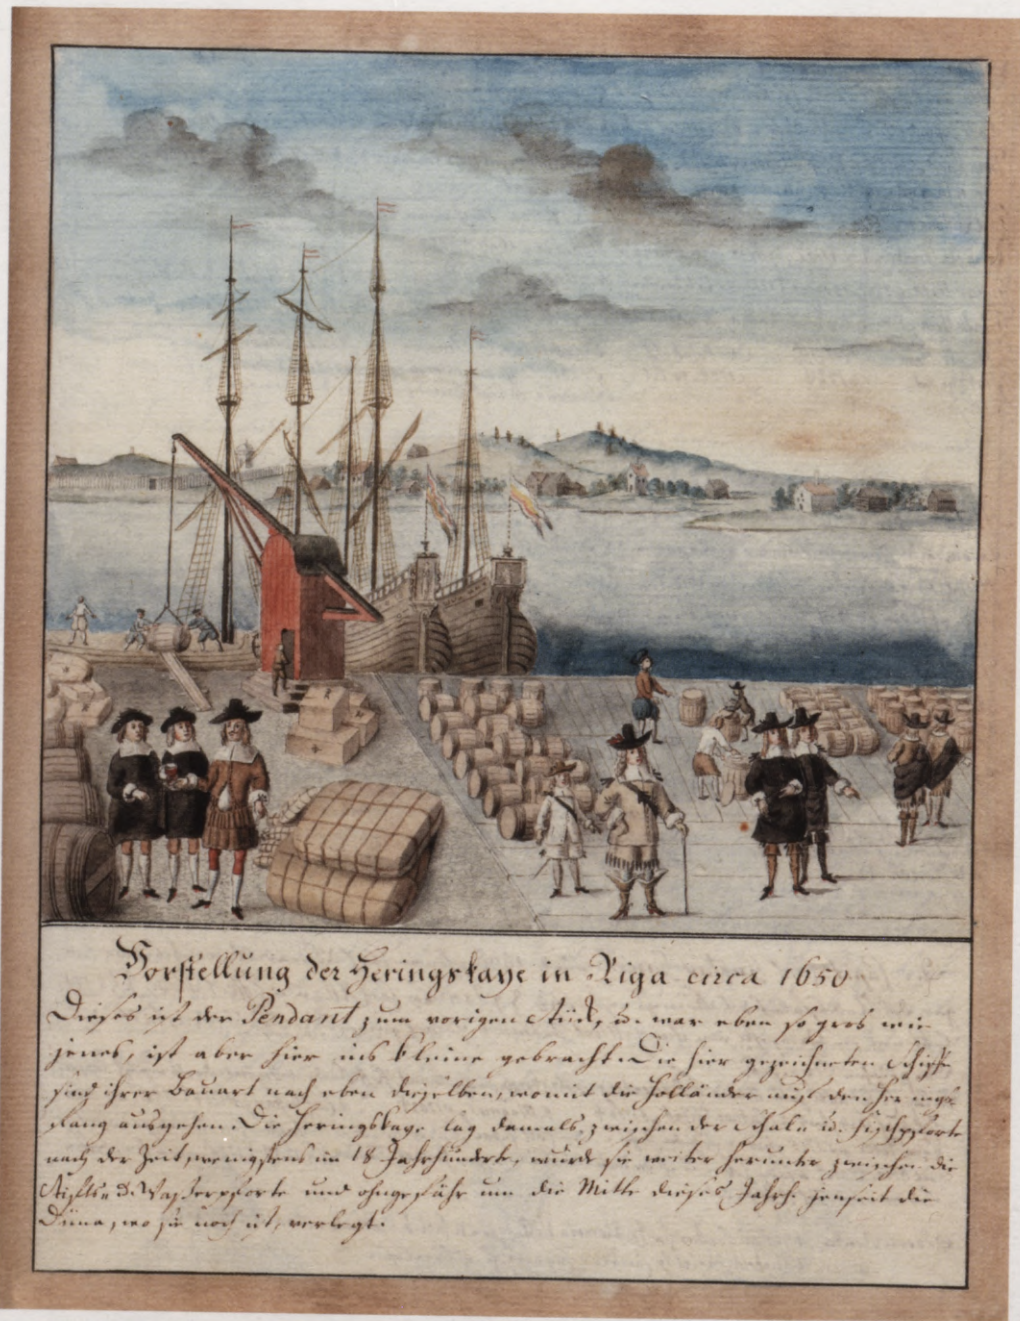 Vorstellung der Heringskaye in Riga circa 1650
Dieses ist der Pendant zum vorigen Stück, u. war eben so gros wie
jenes, ist aber hier ins kleine gebracht. Die hier gezeichneten Schiffe
sind ihrer Bauart nach eben dieselben, womit die Holländer auf den Herings-
fang ausgehen. Die Heringskaye lag damals zwischen der Schaln u. Fischpforte
nach der Zeit, wenigstens im 18 Jahrhunderte, wurde sie weiter herunter zwischen die
Stifts u. Wasserpforte und ohngefähr um die Mitte dieses Jahrh. jenseit die
Düna, wo sie noch ist, verlegt.